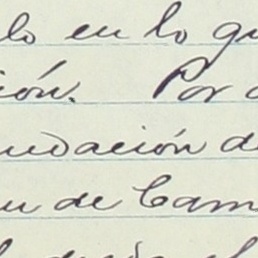 lo en lo qu
ión. Por
undación de
u de Cam